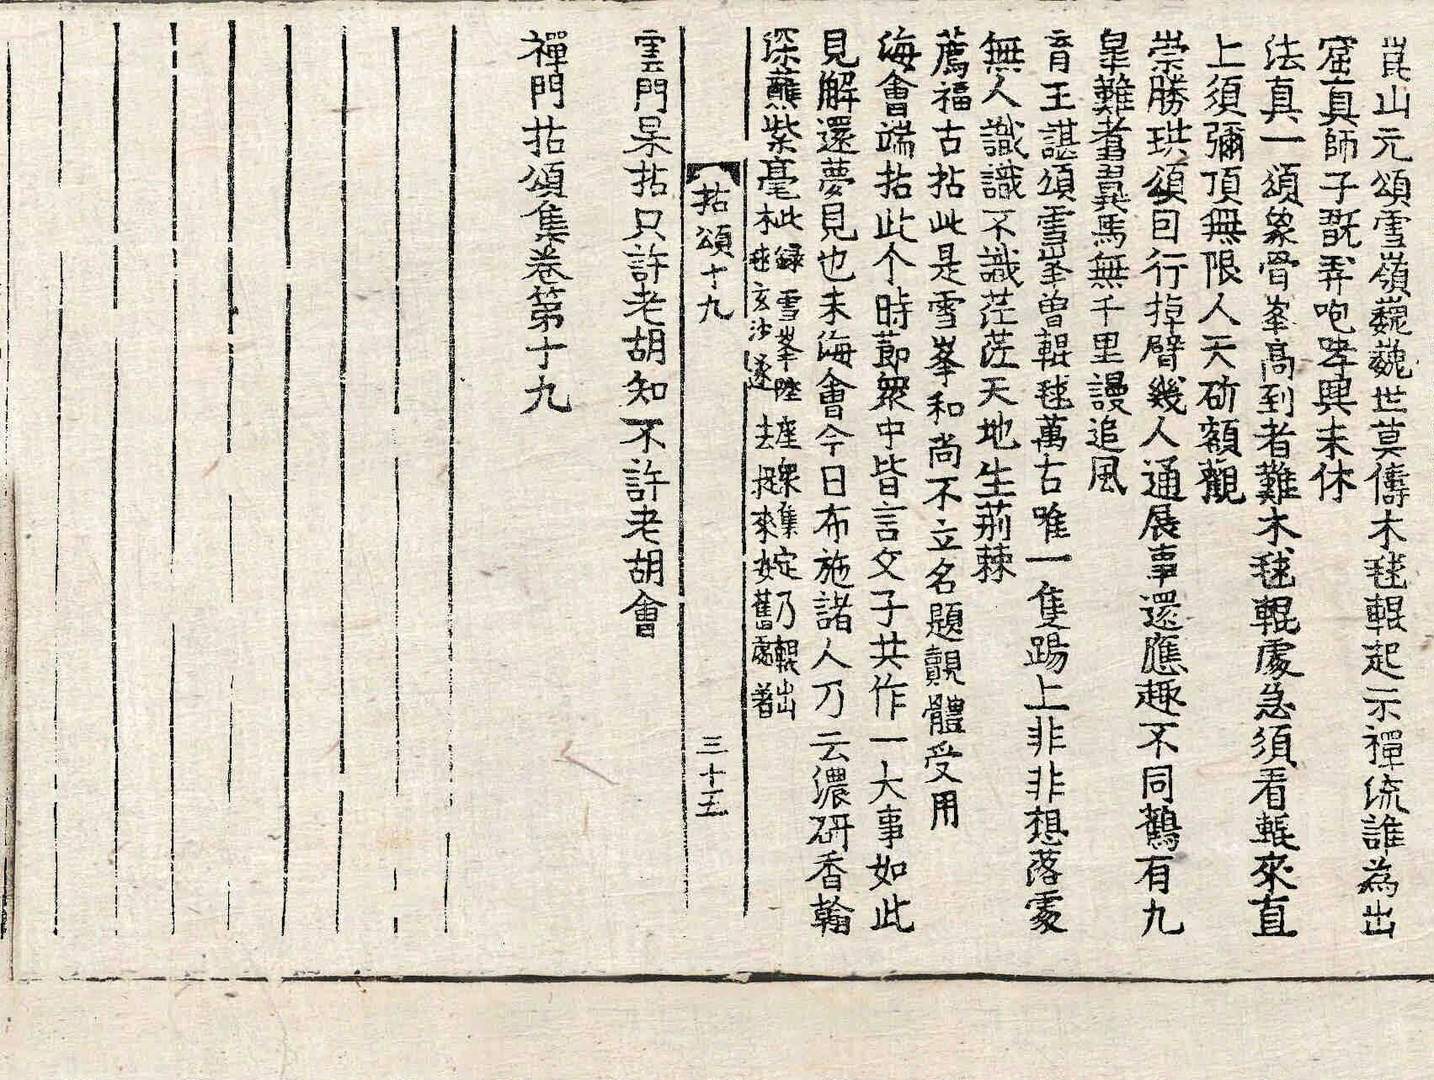 崑山元頌雪嶺巍巍世莫儔木毬輥起示禪流誰為出
窟真師子翫弄咆哮興未休
法真一頌象骨峯高到者難木毬輥處急須看輥來直
上須彌頂無限人天斫額觀
崇勝珙頌囙行掉臂幾人通展事還應趣不同鶴有九
皐難翥翼馬無千里謾追風
育王諶頌雪峯曾輥毬萬古唯一隻踢上非非想落處
無人識識不識茫茫天地生荊棘
薦福古拈此是雪峯和尚不立名題覿體受用
海會端拈此个時莭衆中皆言文子共作一大事如此
見解還夢見也未海會今日布施諸人乃云濃研香翰
深蘸紫毫此録雪峯陞座衆集定乃輥出
木毬玄沙遂去捉來安舊處著
拈頌十九 三十五
雲門杲拈只許老胡知不許老胡會
禪門拈頌集卷第十九